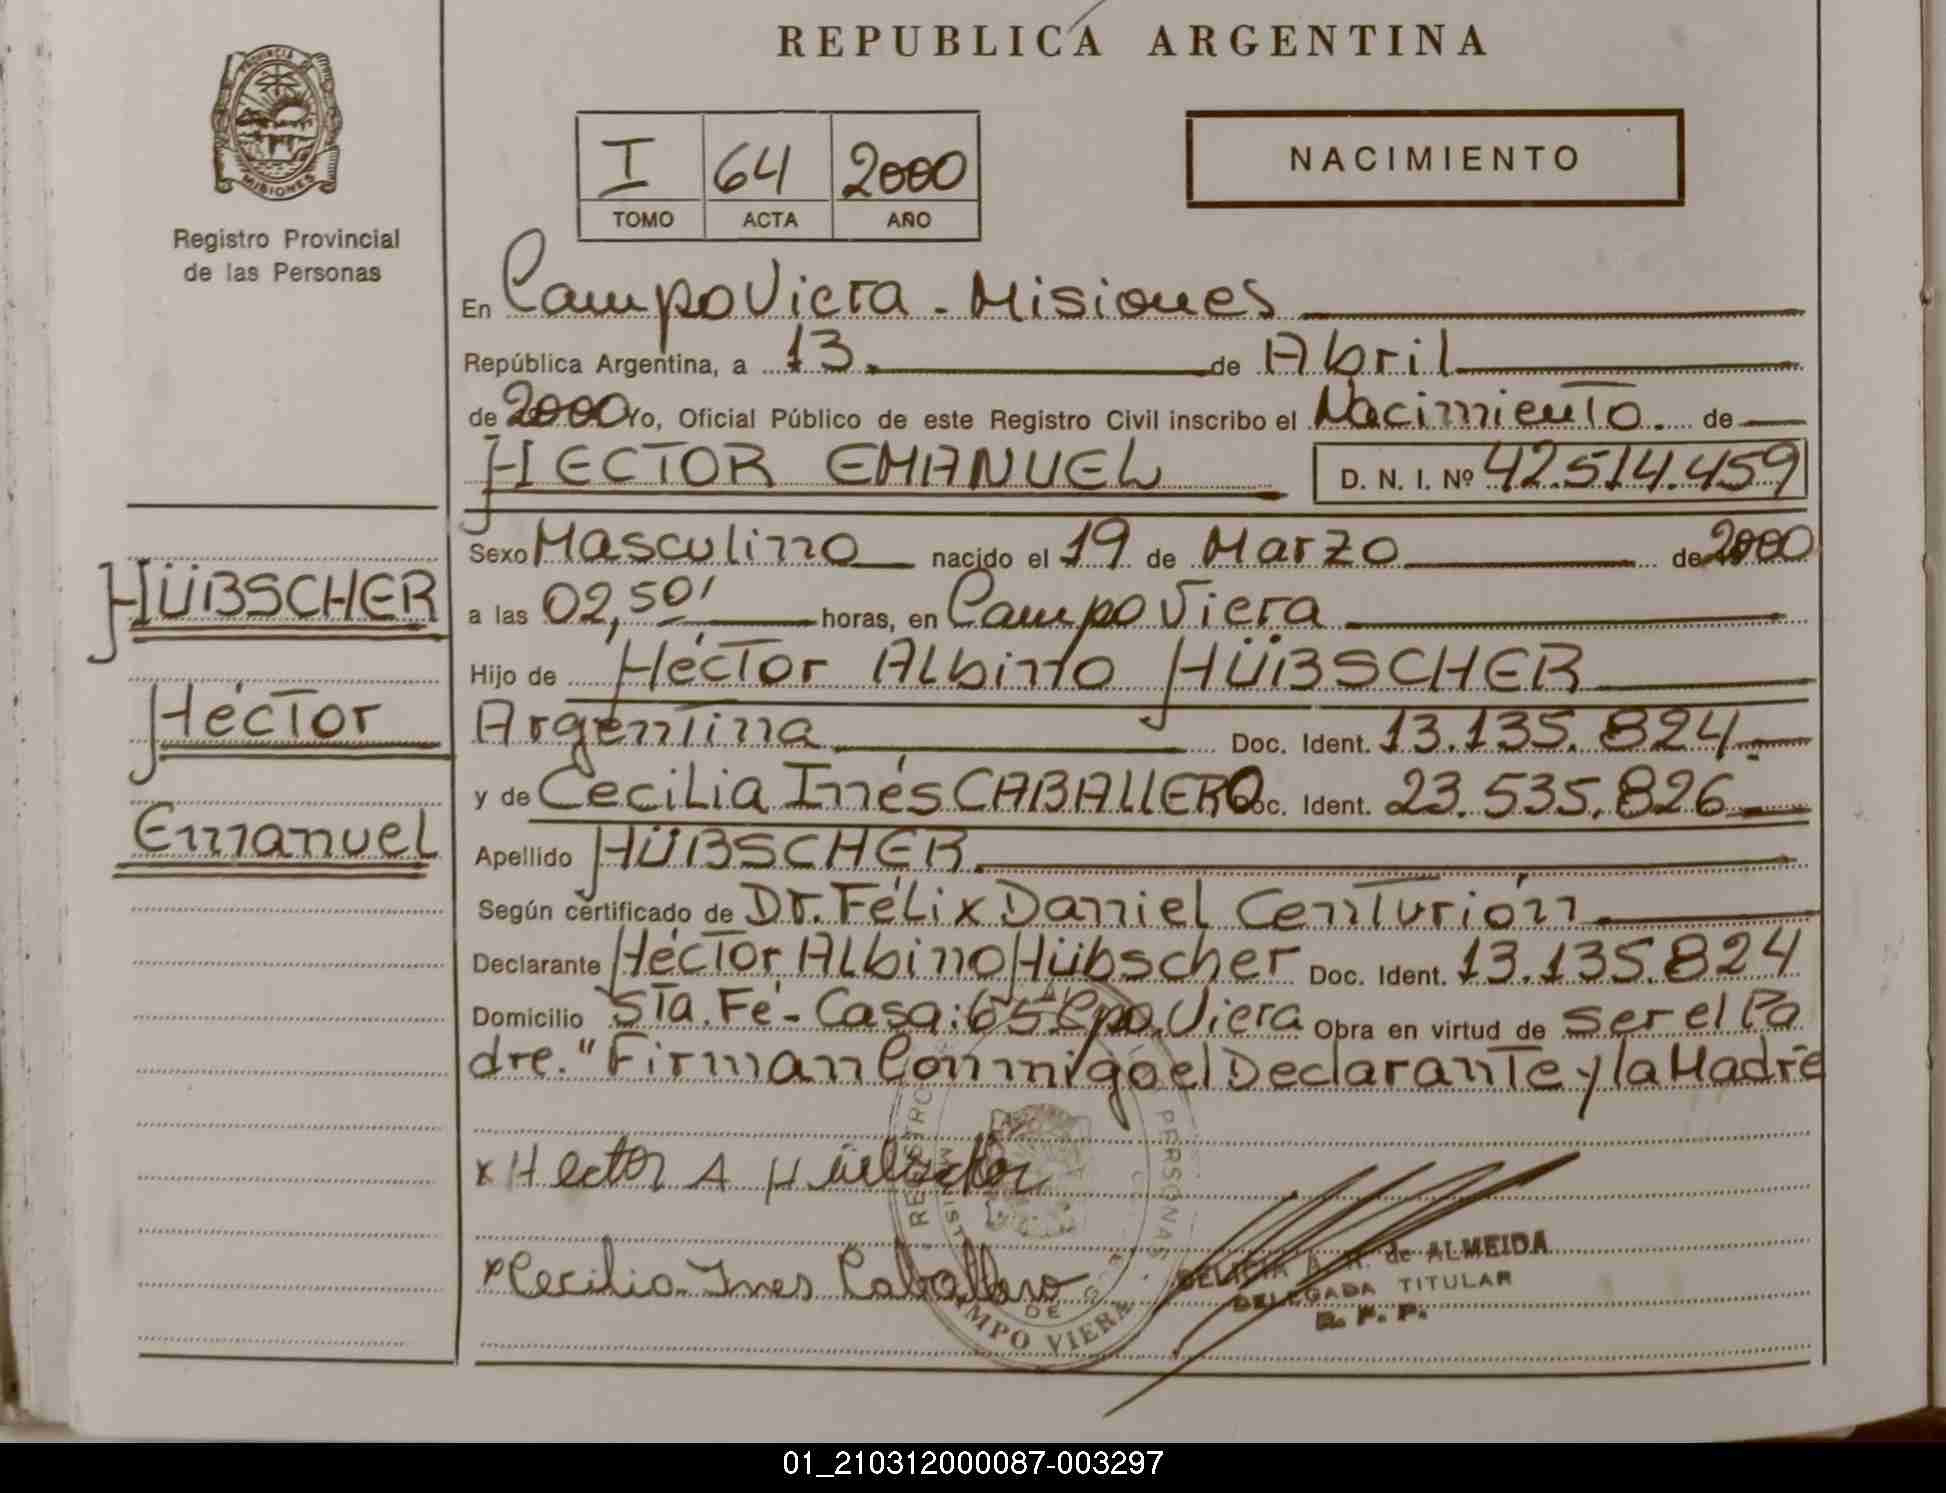 REPUBLICA ARGENTINA
PROVINCIA DE
MISIONES
Registro Provincial
de las Personas
I 64 2000
TOMO ACTA AÑO
NACIMIENTO
En Campo Viera - Misiones
República Argentina, a 13. de Abril
de 2000 Yo, Oficial Público de este Registro Civil inscribo el Nacimiento. de
HECTOR EMANUEL D. N. I. Nº 42.514.459
Sexo Masculino nacido el 19 de Marzo de 2000
a las 02,50' horas, en Campo Viera
Hijo de Héctor Albino HÜBSCHER
Argentina Doc. Ident. 13.135.824.
y de Cecilia Inés CABALLERO Doc. Ident. 23.535.826
Apellido HÜBSCHER
Según certificado de Dr. Félix Daniel Centurión
Declarante Héctor Albino Hübscher Doc. Ident. 13.135.824
Domicilio Sta. Fé - Casa: 65 Cpo. Viera Obra en virtud de ser el Pa
dre." Firman Conmigo el Declarante y la Madre
HÜBSCHER
Héctor
Emanuel
x Hector A Hübscher
x Cecilia Ines Caballero
REGISTRO PERSONAS
DE
CAMPO VIERA
DELICIA A. R. de ALMEIDA
DELEGADA TITULAR
R. P. P.
01_210312000087-003297